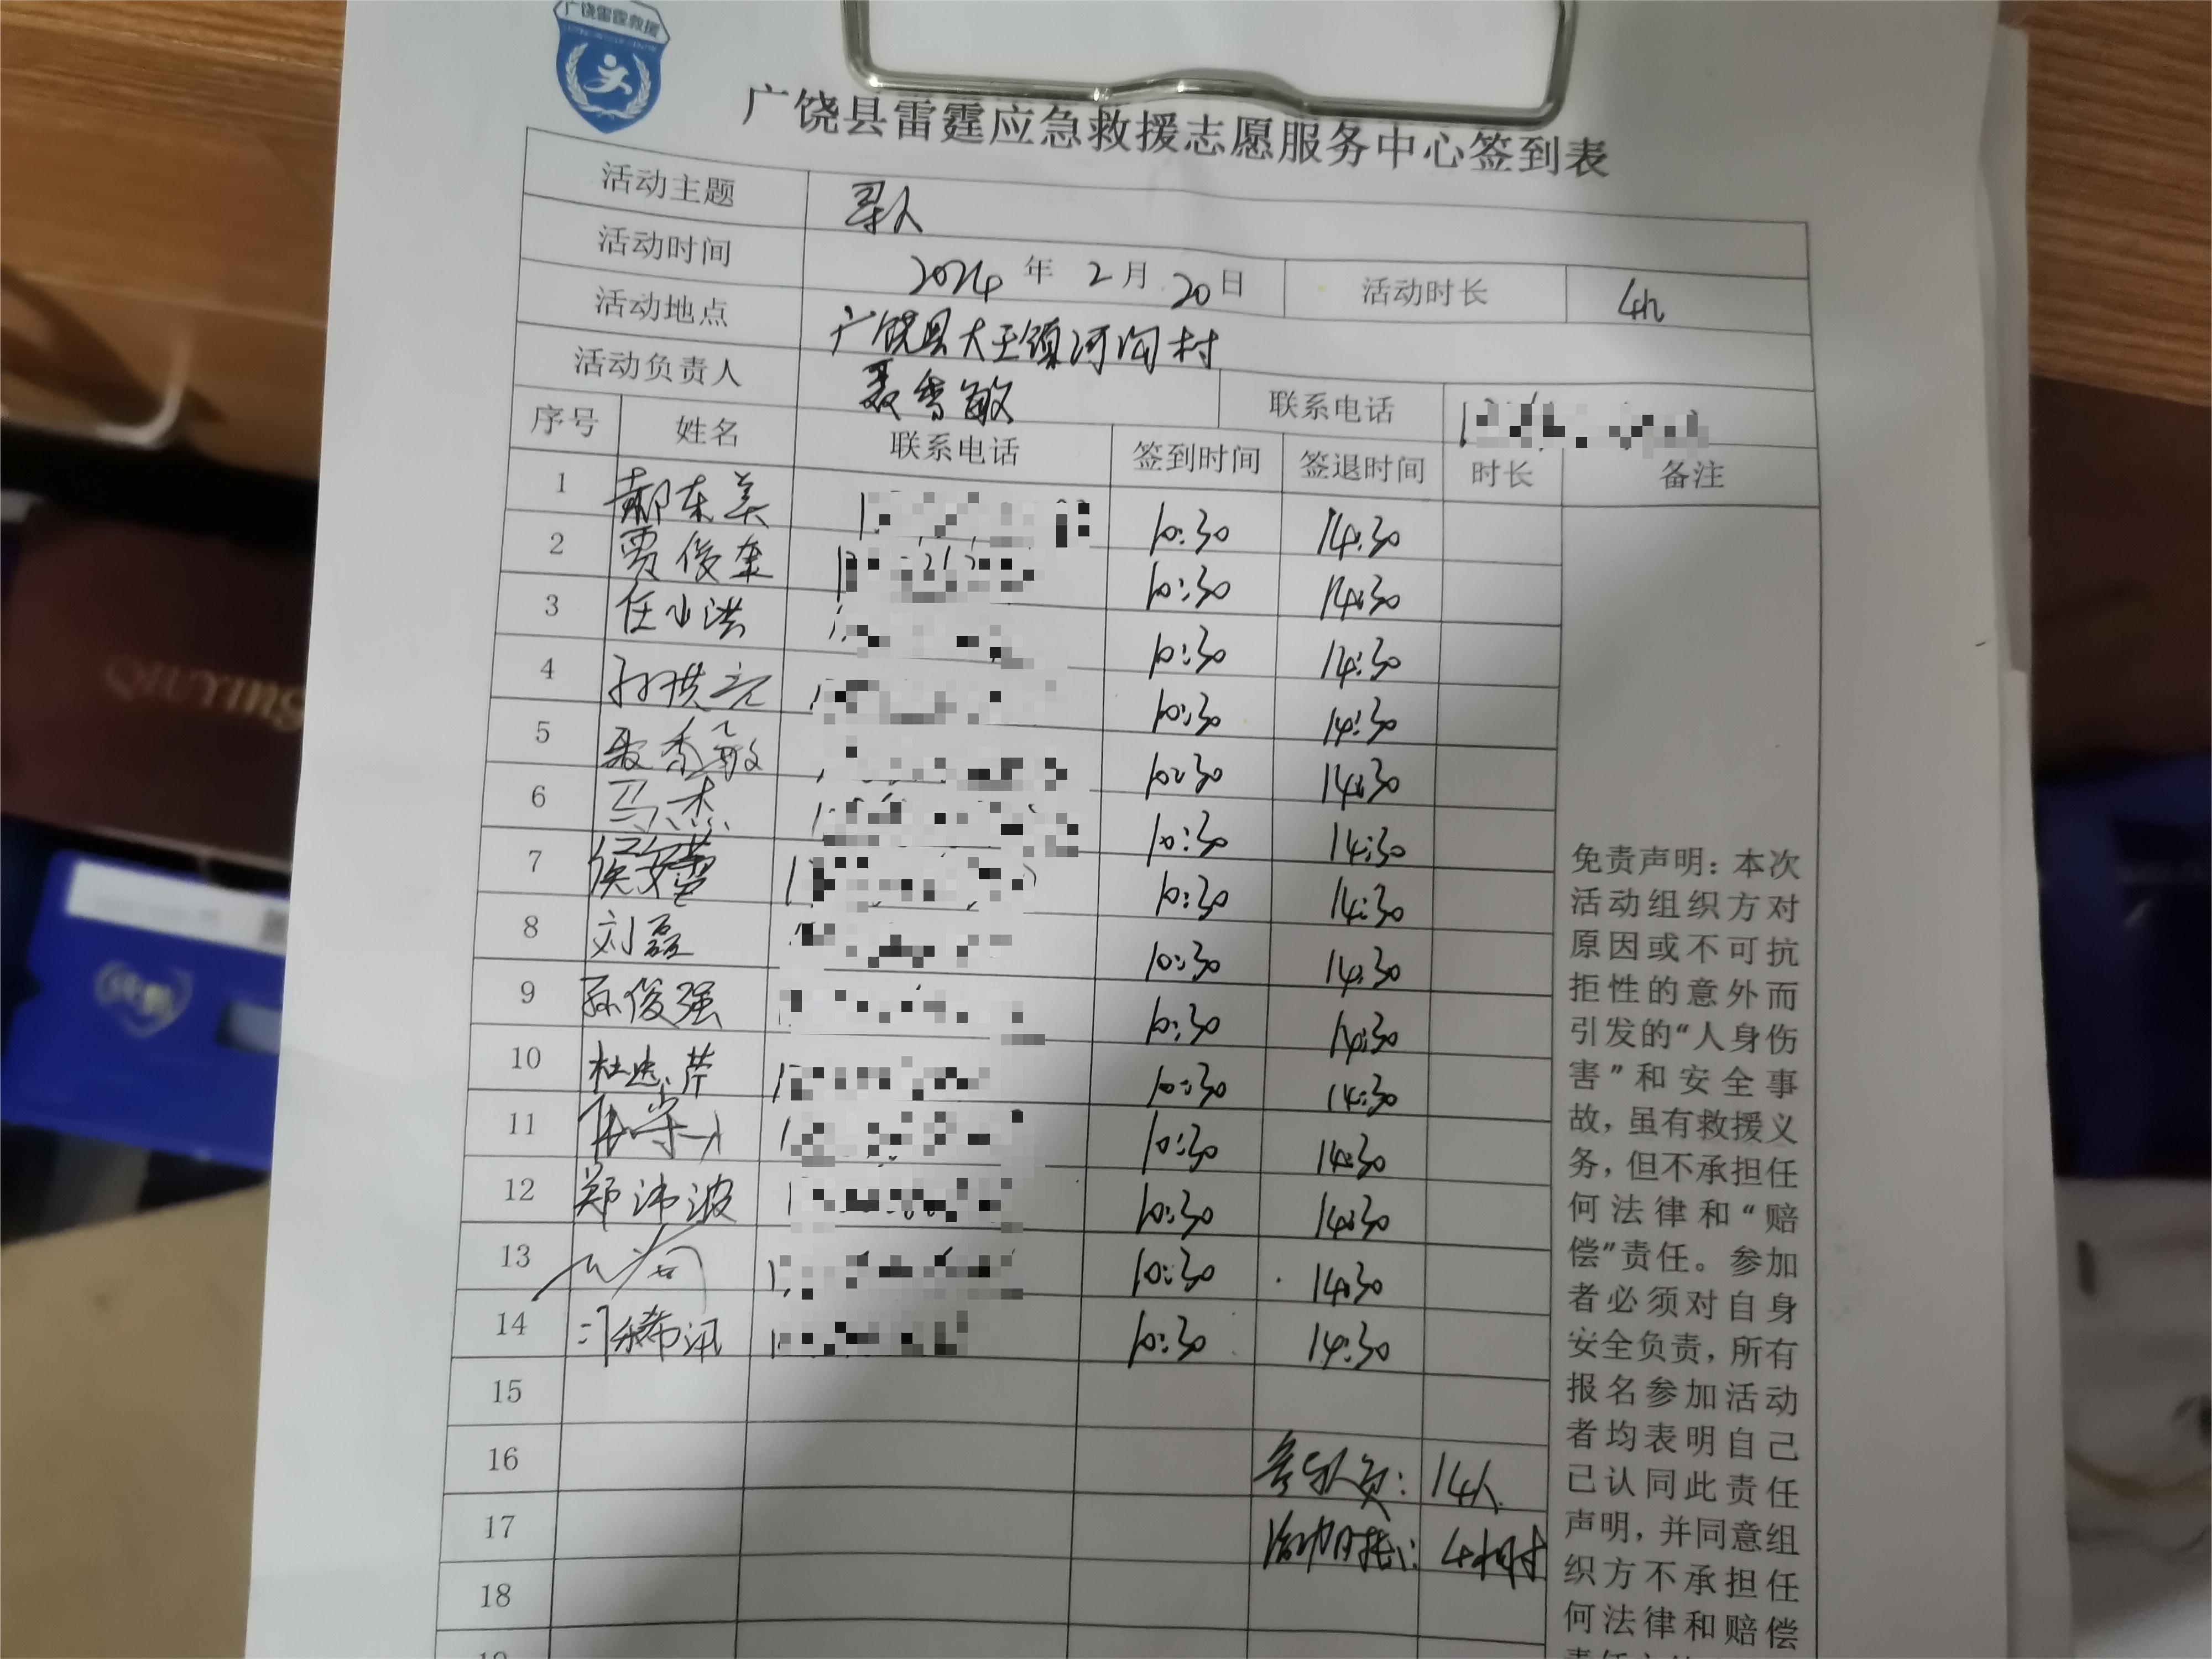 广饶雷霆救援
广饶县雷霆应急救援志愿服务中心签到表
活动主题 寻人
活动时间 2024年2月20日 活动时长 4h
活动地点 广饶县大王镇河沟村
活动负责人 聂香敏 联系电话
序号 姓名 联系电话 签到时间 签退时间 时长 备注
1 郝东美 10:30 14:30
2 贾俊奎 10:30 14:30
3 任小洪 10:30 14:30
4 孙洪亮 10:30 14:30
5 聂香敏 10:30 14:30
6 马杰 10:30 14:30
7 侯安营 10:30 14:30
8 刘磊 10:30 14:30
9 孙俊强 10:30 14:30
10 杜忠芹 10:30 14:30
11 10:30 14:30
12 郑沛波 10:30 14:30
13 10:30 14:30
14 10:30 14:30
15
16 参与人员: 14人
17 活动时长: 4小时
18
免责声明：本次
活动组织方对
原因或不可抗
拒性的意外而
引发的“人身伤
害”和安全事
故，虽有救援义
务，但不承担任
何法律和“赔
偿”责任。参加
者必须对自身
安全负责，所有
报名参加活动
者均表明自己
已认同此责任
声明，并同意组
织方不承担任
何法律和赔偿
QIUYING